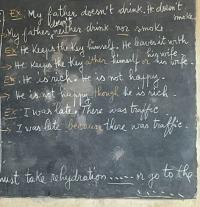 Ex: My father doesn't drink. He doesn't
smoke.
doesn't
My father neither drink nor smoke.
Ex: He keeps the key himself. He leaves it with
his wife.
→ He keeps the key either himself or his wife.
Ex: He is rich. He is not happy.
→ He is not happy though he is rich.
Ex: I was late. There was traffic
→ I was late because there was traffic.
must take rehydration ...... or go to the